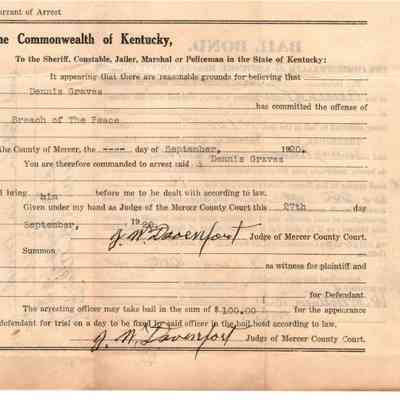 arrant of Arrest
he Commonwealth of Kentucky,
To the Sheriff, Constable, Jailer, Marshal or Policeman in the State of Kentucky:
It appearing that there are reasonable grounds for believing that
Dennis Graves
has committed the offense of
Breach of The Peace
the County of Mercer, the ---- day of September, 1920.
You are therefore commanded to arrest said Dennis Graves
d bring him before me to be dealt with according to law.
Given under my hand as Judge of the Mercer County Court this 27th day
September, 1920
J. W. Davenport Judge of Mercer County Court.
Summon
as witness for plaintiff and
for Defendant.
The arresting officer may take bail in the sum of $100.00 for the appearance
defendant for trial on a day to be fixed by said officer in the bail bond according to law.
J. W. Davenport Judge of Mercer County Court.
BAIL BOND.